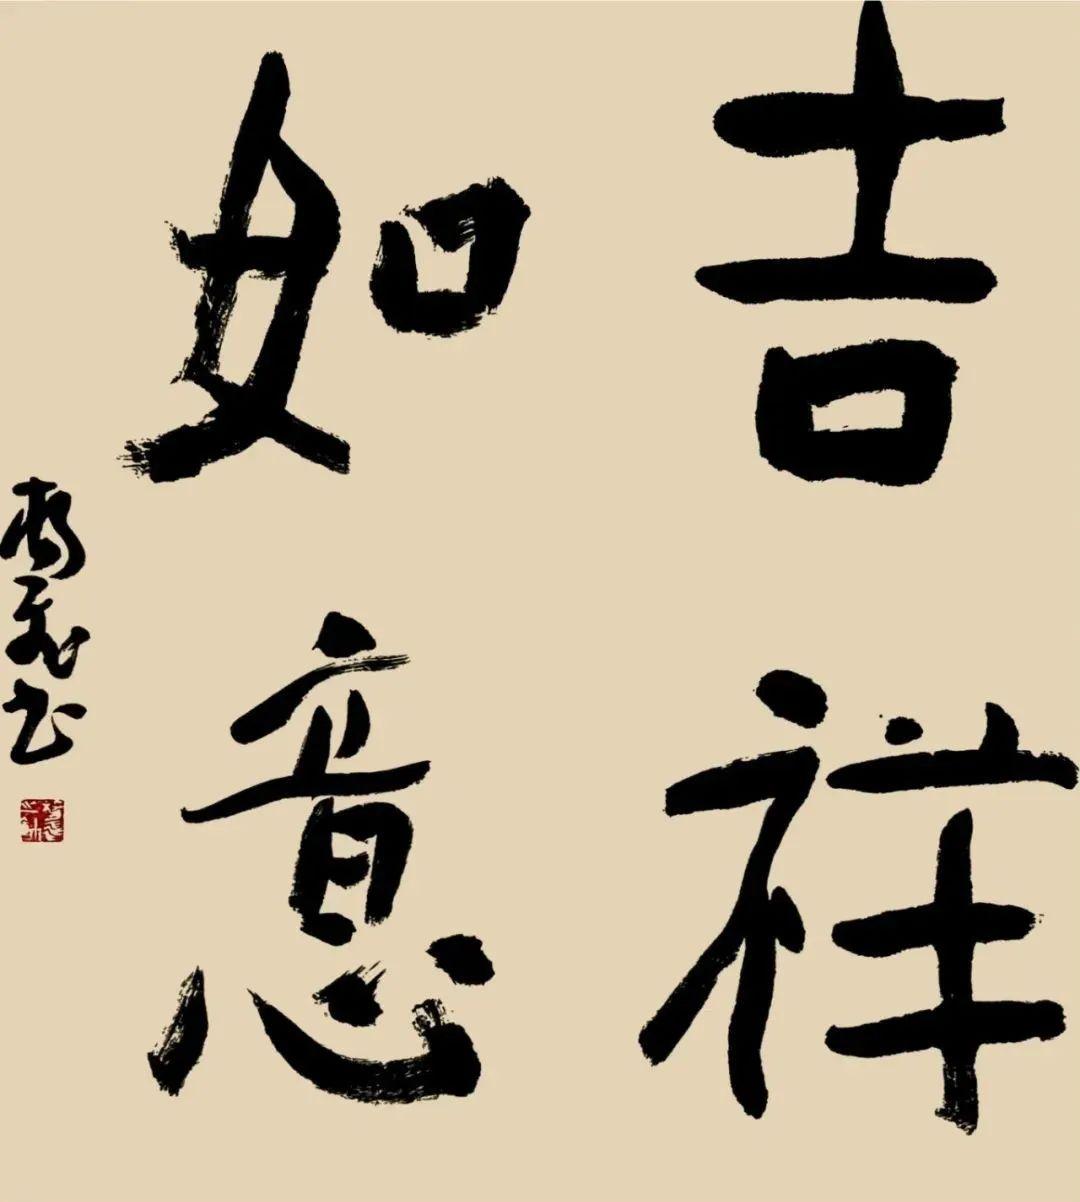 吉祥
如意
书